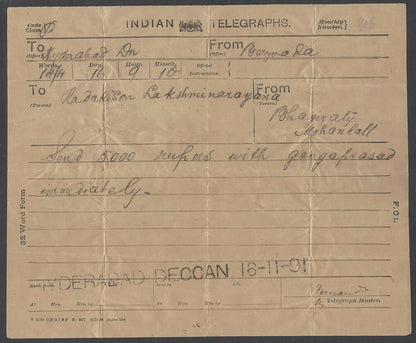 Code
Class
INDIAN TELEGRAPHS.
Monthly
Number.
To
(Office)
Hyderabad Dn
From
(Office)
Bezwada
Words.
Day.
Hour.
Minute.
Official
Instructions.
14/4
16
9
10
To
(Person)
Radakison Lakshminarayana
From
(Person)
Bhagirati
Mohanlall
Send 5000 rupees with gangaprasad
immediately-
32 Word Form
HYDERABAD DECCAN 16-11-91
At Hrs. Mts by
At Hrs. Mts by
Telegraph Master.